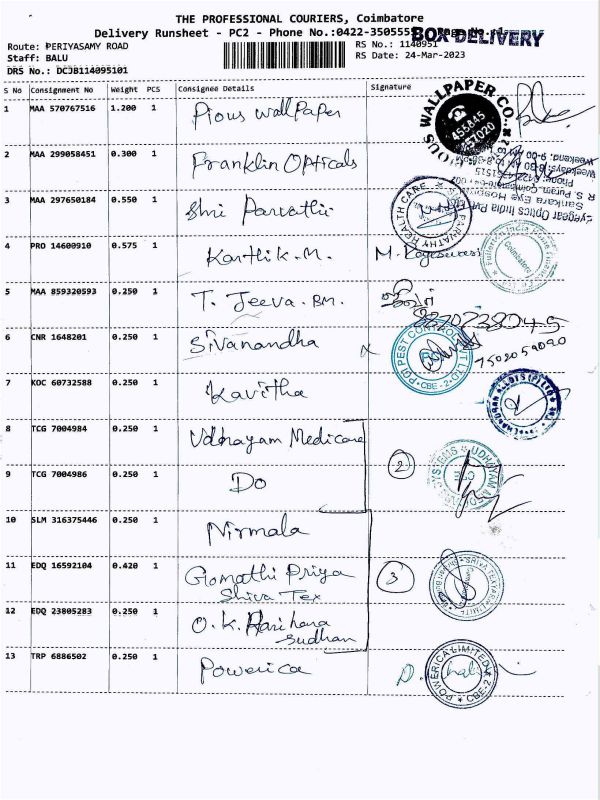 THE PROFESSIONAL COURIERS, Coimbatore
Delivery Runsheet - PC2 - Phone No.:0422-3505555
BOX DELIVERY
Route: PERIYASAMY ROAD
RS No.: 1140951
Staff: BALU
RS Date: 24-Mar-2023
DRS No.: DCJB114095101
S No Consignment No Weight PCS Consignee Details Signature
1 MAA 570767516 1.200 1 Pious WallPaper
WALLPAPER CO.
2 MAA 299058451 0.300 1 Franklin Opticals
3 MAA 297650184 0.550 1 Shri Parvathi
PARVATHY HEALTH CARE
4 PRO 14600910 0.575 1 Karthik.M.
Coimbatore
5 MAA 859320593 0.250 1 T. Jeeva.BM.
6 CNR 1648201 0.250 1 Sivanandha
PGI PEST CONTROL PVT LTD CBE-2
7502059090
7 KOC 60732588 0.250 1 Kavitha
8 TCG 7004984 0.250 1 Udhayam Medicare
2
9 TCG 7004986 0.250 1 Do
10 SLM 316375446 0.250 1 Nirmala
11 EDQ 16592104 0.420 1 Gomathi Priya
Shiva Tex
3
12 EDQ 23805283 0.250 1 O.K. Harihara
Sudhan
13 TRP 6886502 0.250 1 Powerica
POWERICA LIMITED CBE-2